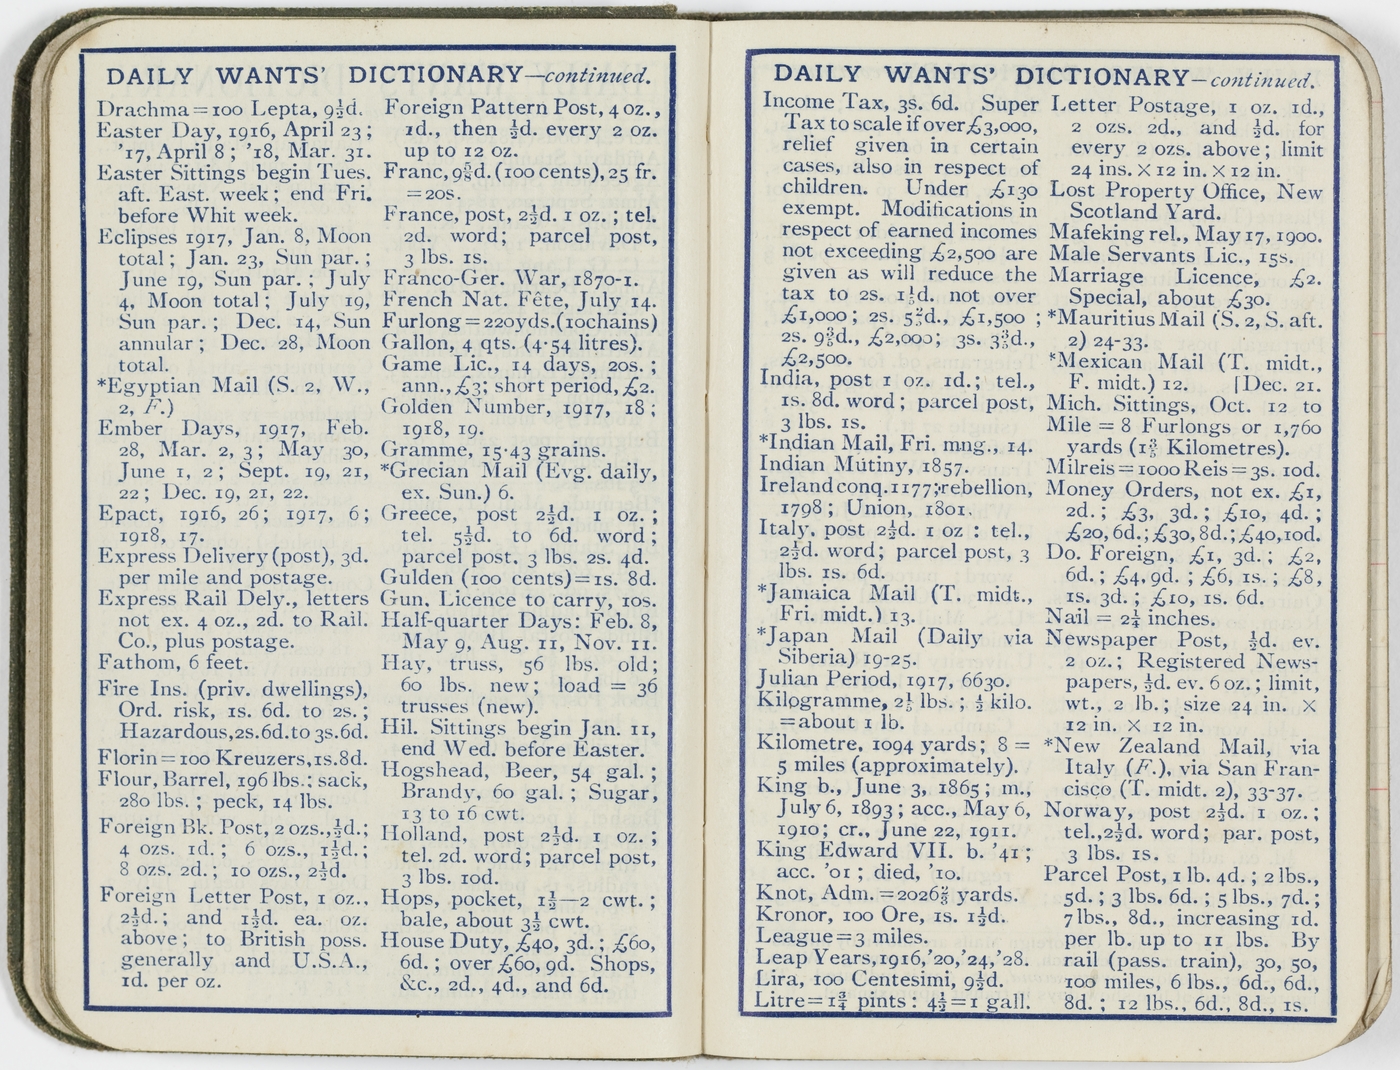 DAILY WANTS' DICTIONARY—continued.
Drachma=100 Lepta, 9½d.
Easter Day, 1916, April 23;
'17, April 8; '18, Mar. 31.
Easter Sittings begin Tues.
aft. East. week; end Fri.
before Whit week.
Eclipses 1917, Jan. 8, Moon
total; Jan. 23, Sun par.;
June 19, Sun par.; July
4, Moon total; July 19,
Sun par.; Dec. 14, Sun
annular; Dec. 28, Moon
total.
*Egyptian Mail (S. 2, W.,
2, F.)
Ember Days, 1917, Feb.
28, Mar. 2, 3; May 30,
June 1, 2; Sept. 19, 21,
22; Dec. 19, 21, 22.
Epact, 1916, 26; 1917, 6;
1918, 17.
Express Delivery (post), 3d.
per mile and postage.
Express Rail Dely., letters
not ex. 4 oz., 2d. to Rail.
Co., plus postage.
Fathom, 6 feet.
Fire Ins. (priv. dwellings),
Ord. risk, 1s. 6d. to 2s.;
Hazardous, 2s. 6d. to 3s. 6d.
Florin=100 Kreuzers, 1s. 8d.
Flour, Barrel, 196 lbs.; sack,
280 lbs.; peck, 14 lbs.
Foreign Bk. Post, 2 ozs., ½d.;
4 ozs. 1d.; 6 ozs., 1½d.;
8 ozs. 2d.; 10 ozs., 2½d.
Foreign Letter Post, 1 oz.,
2½d.; and 1½d. ea. oz.
above; to British poss.
generally and U.S.A.,
1d. per oz.
Foreign Pattern Post, 4 oz.,
1d., then ½d. every 2 oz.
up to 12 oz.
Franc, 9⅝d. (100 cents), 25 fr.
=20s.
France, post, 2½d. 1 oz.; tel.
2d. word; parcel post,
3 lbs. 1s.
Franco-Ger. War, 1870-1.
French Nat. Fête, July 14.
Furlong=220yds. (10chains)
Gallon, 4 qts. (4·54 litres).
Game Lic., 14 days, 20s.;
ann., £3; short period, £2.
Golden Number, 1917, 18;
1918, 19.
Gramme, 15·43 grains.
*Grecian Mail (Evg. daily,
ex. Sun.) 6.
Greece, post 2½d. 1 oz.;
tel. 5½d. to 6d. word;
parcel post, 3 lbs. 2s. 4d.
Gulden (100 cents)=1s. 8d.
Gun, Licence to carry, 10s.
Half-quarter Days: Feb. 8,
May 9, Aug. 11, Nov. 11.
Hay, truss, 56 lbs. old;
60 lbs. new; load = 36
trusses (new).
Hil. Sittings begin Jan. 11,
end Wed. before Easter.
Hogshead, Beer, 54 gal.;
Brandy, 60 gal.; Sugar,
13 to 16 cwt.
Holland, post 2½d. 1 oz.;
tel. 2d. word; parcel post,
3 lbs. 10d.
Hops, pocket, 1½—2 cwt.;
bale, about 3½ cwt.
House Duty, £40, 3d.; £60,
6d.; over £60, 9d. Shops,
&c., 2d., 4d., and 6d.
DAILY WANTS' DICTIONARY—continued.
Income Tax, 3s. 6d. Super
Tax to scale if over £3,000,
relief given in certain
cases, also in respect of
children. Under £130
exempt. Modifications in
respect of earned incomes
not exceeding £2,500 are
given as will reduce the
tax to 2s. 1⅕d. not over
£1,000; 2s. 5⅖d., £1,500;
2s. 9⅗d., £2,000; 3s. 3⅗d.,
£2,500.
India, post 1 oz. 1d.; tel.,
1s. 8d. word; parcel post,
3 lbs. 1s.
*Indian Mail, Fri. mng., 14.
Indian Mutiny, 1857.
Ireland conq. 1177; rebellion,
1798; Union, 1801.
Italy, post 2½d. 1 oz: tel.,
2½d. word; parcel post, 3
lbs. 1s. 6d.
*Jamaica Mail (T. midt.,
Fri. midt.) 13.
*Japan Mail (Daily via
Siberia) 19-25.
Julian Period, 1917, 6630.
Kilogramme, 2⅕ lbs.; ½ kilo.
=about 1 lb.
Kilometre, 1094 yards; 8 =
5 miles (approximately).
King b., June 3, 1865; m.,
July 6, 1893; acc., May 6,
1910; cr., June 22, 1911.
King Edward VII. b. '41;
acc. '01; died, '10.
Knot, Adm.=2026⅔ yards.
Kronor, 100 Ore, 1s. 1½d.
League=3 miles.
Leap Years, 1916, '20, '24, '28.
Lira, 100 Centesimi, 9½d.
Litre=1¾ pints: 4½=1 gall.
Letter Postage, 1 oz. 1d.,
2 ozs. 2d., and ½d. for
every 2 ozs. above; limit
24 ins. X 12 in. X 12 in.
Lost Property Office, New
Scotland Yard.
Mafeking rel., May 17, 1900.
Male Servants Lic., 15s.
Marriage Licence, £2.
Special, about £30.
*Mauritius Mail (S. 2, S. aft.
2) 24-33.
*Mexican Mail (T. midt.,
F. midt.) 12. [Dec. 21.
Mich. Sittings, Oct. 12 to
Mile = 8 Furlongs or 1,760
yards (1⅗ Kilometres).
Milreis=1000 Reis=3s. 10d.
Money Orders, not ex. £1,
2d.; £3, 3d.; £10, 4d.;
£20, 6d.; £30, 8d.; £40, 10d.
Do. Foreign, £1, 3d.; £2,
6d.; £4, 9d.; £6, 1s.; £8,
1s. 3d.; £10, 1s. 6d.
Nail = 2¼ inches.
Newspaper Post, ½d. ev.
2 oz.; Registered News-
papers, ½d. ev. 6 oz.; limit,
wt., 2 lb.; size 24 in. X
12 in. X 12 in.
*New Zealand Mail, via
Italy (F.), via San Fran-
cisco (T. midt. 2), 33-37.
Norway, post 2½d. 1 oz.;
tel., 2½d. word; par. post,
3 lbs. 1s.
Parcel Post, 1 lb. 4d.; 2 lbs.,
5d.; 3 lbs. 6d.; 5 lbs., 7d.;
7 lbs., 8d., increasing 1d.
per lb. up to 11 lbs. By
rail (pass. train), 30, 50,
100 miles, 6 lbs., 6d., 6d.,
8d.; 12 lbs., 6d., 8d., 1s.